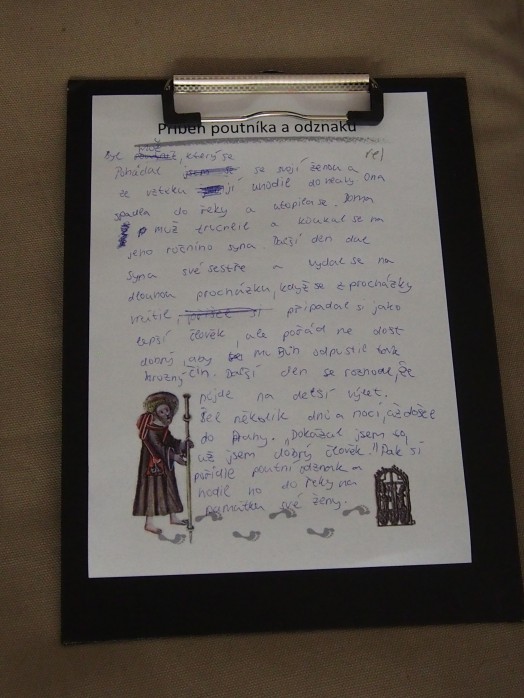 Příběh poutníka a odznaku
Byl muž, který se
Pohádal se svojí ženou a
ze vzteku jí uhodil do hlavy. Ona
spadla do řeky a utopila se. Doma
muž truchlil a koukal se na
jeho ročního syna. Další den dal
syna své sestře a vydal se na
dlouhou procházku, když se z procházky
vrátil, si připadal si jako
lepší člověk, ale pořád ne dost
dobrý, aby mu Bůh odpustil
hrozný čin. Další den se rozhodl, že
půjde na delší výlet.
Šel několik dnů a nocí, až došel
do Prahy. „Dokázal jsem to,
už jsem dobrý člověk!" Pak si
pořídil poutní odznak a
hodil ho do řeky na
památku své ženy.